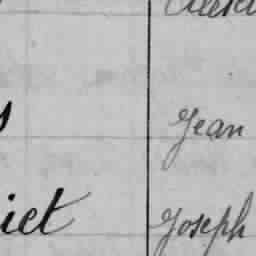 Jean
iet Joseph